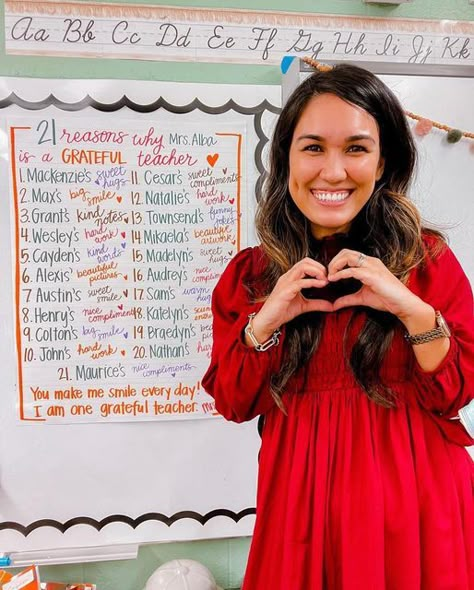 Aa Bb Cc Dd Ee Ff Gg Hh Ii Jj Kk
21 reasons why Mrs. Alba
is a GRATEFUL teacher
1. Mackenzie's sweet hugs
2. Max's big smile
3. Grant's kind notes
4. Wesley's hard work
5. Cayden's kind words
6. Alexis' beautiful pictures
7. Austin's sweet smile
8. Henry's nice compliments
9. Colton's big smile
10. John's hard work
11. Cesar's sweet compliments
12. Natalie's hard work
13. Townsend's funny jokes
14. Mikaela's beautiful artwork
15. Madelyn's
16. Audrey's nice
17. Sam's warm hugs
18. Katelyn's sweet
19. Braedyn's
20. Nathan's
21. Maurice's nice compliments
You make me smile every day!
I am one grateful teacher.